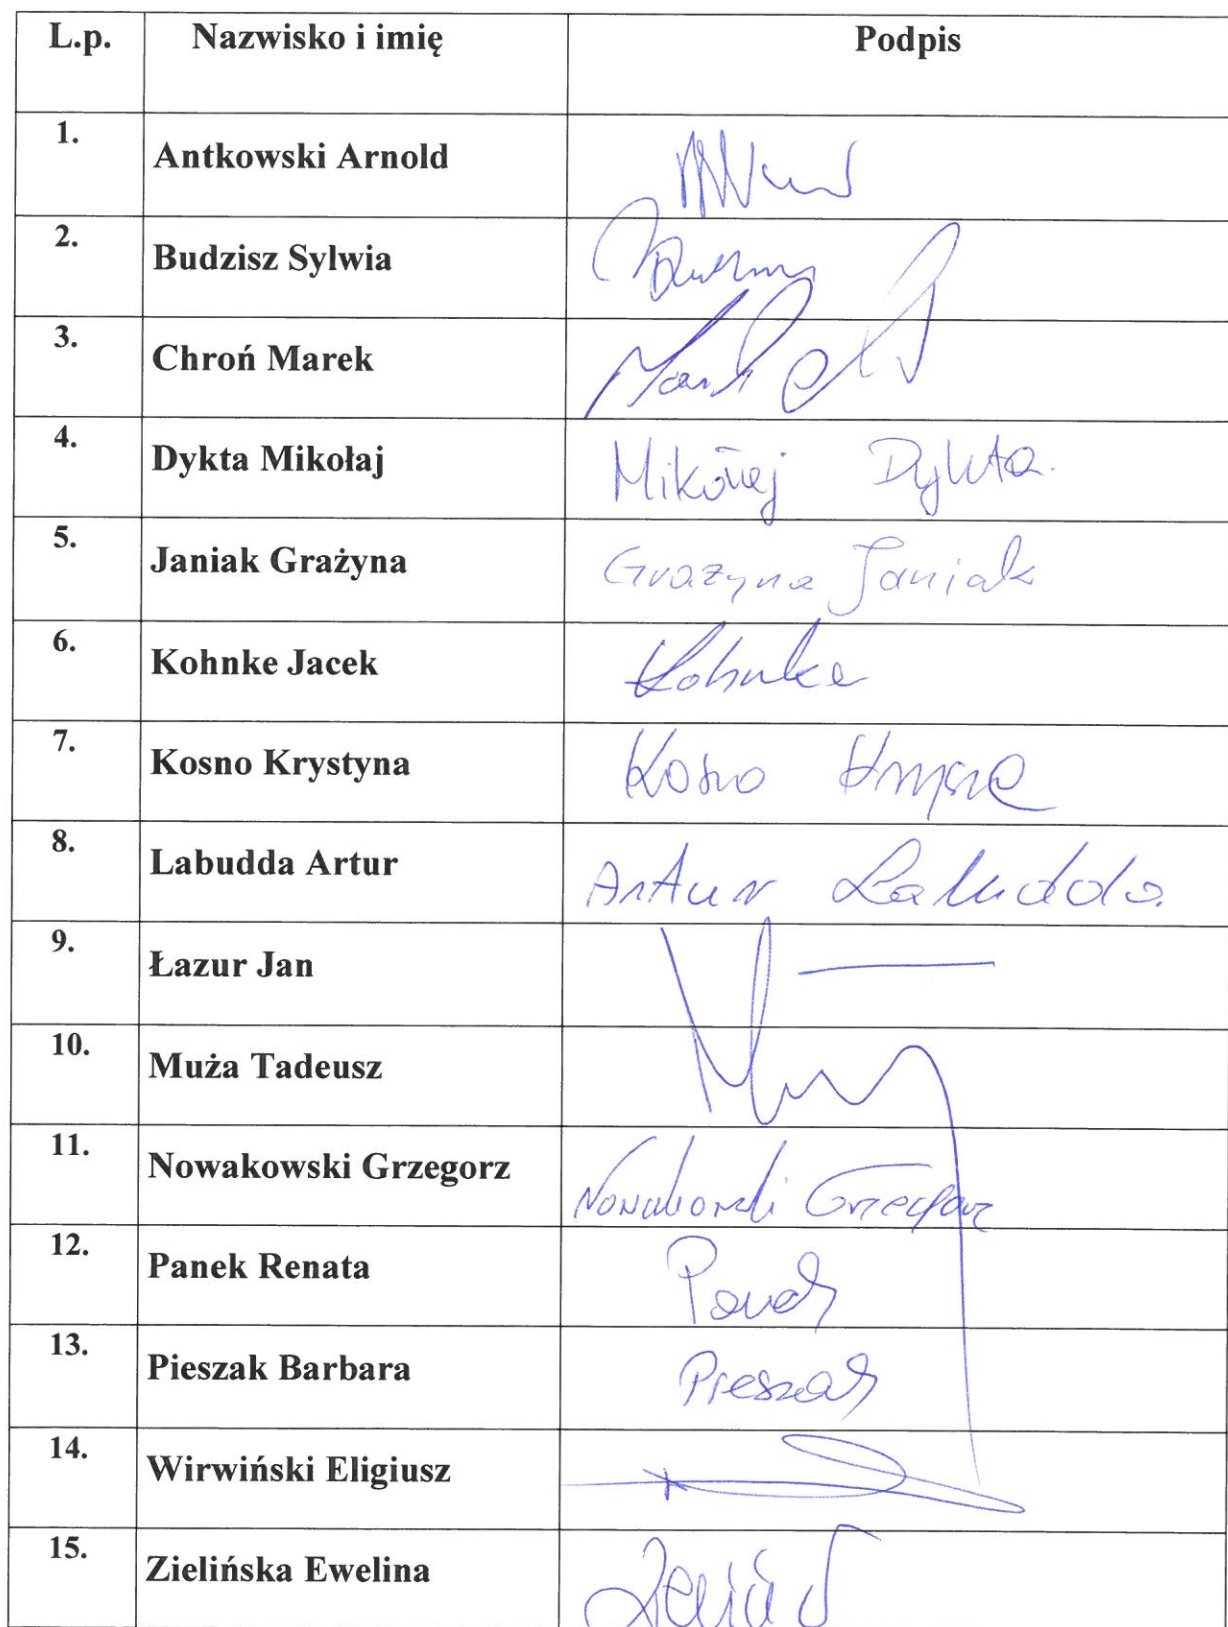 L.p. Nazwisko i imię Podpis
1. Antkowski Arnold
2. Budzisz Sylwia
3. Chroń Marek
4. Dykta Mikołaj Mikołaj Dykta
5. Janiak Grażyna Grażyna Janiak
6. Kohnke Jacek Kohnke
7. Kosno Krystyna Kosno
8. Labudda Artur Artur Labudda
9. Łazur Jan —
10. Muża Tadeusz
11. Nowakowski Grzegorz Nowakowski Grzegorz
12. Panek Renata Panek
13. Pieszak Barbara Pieszak
14. Wirwiński Eligiusz
15. Zielińska Ewelina